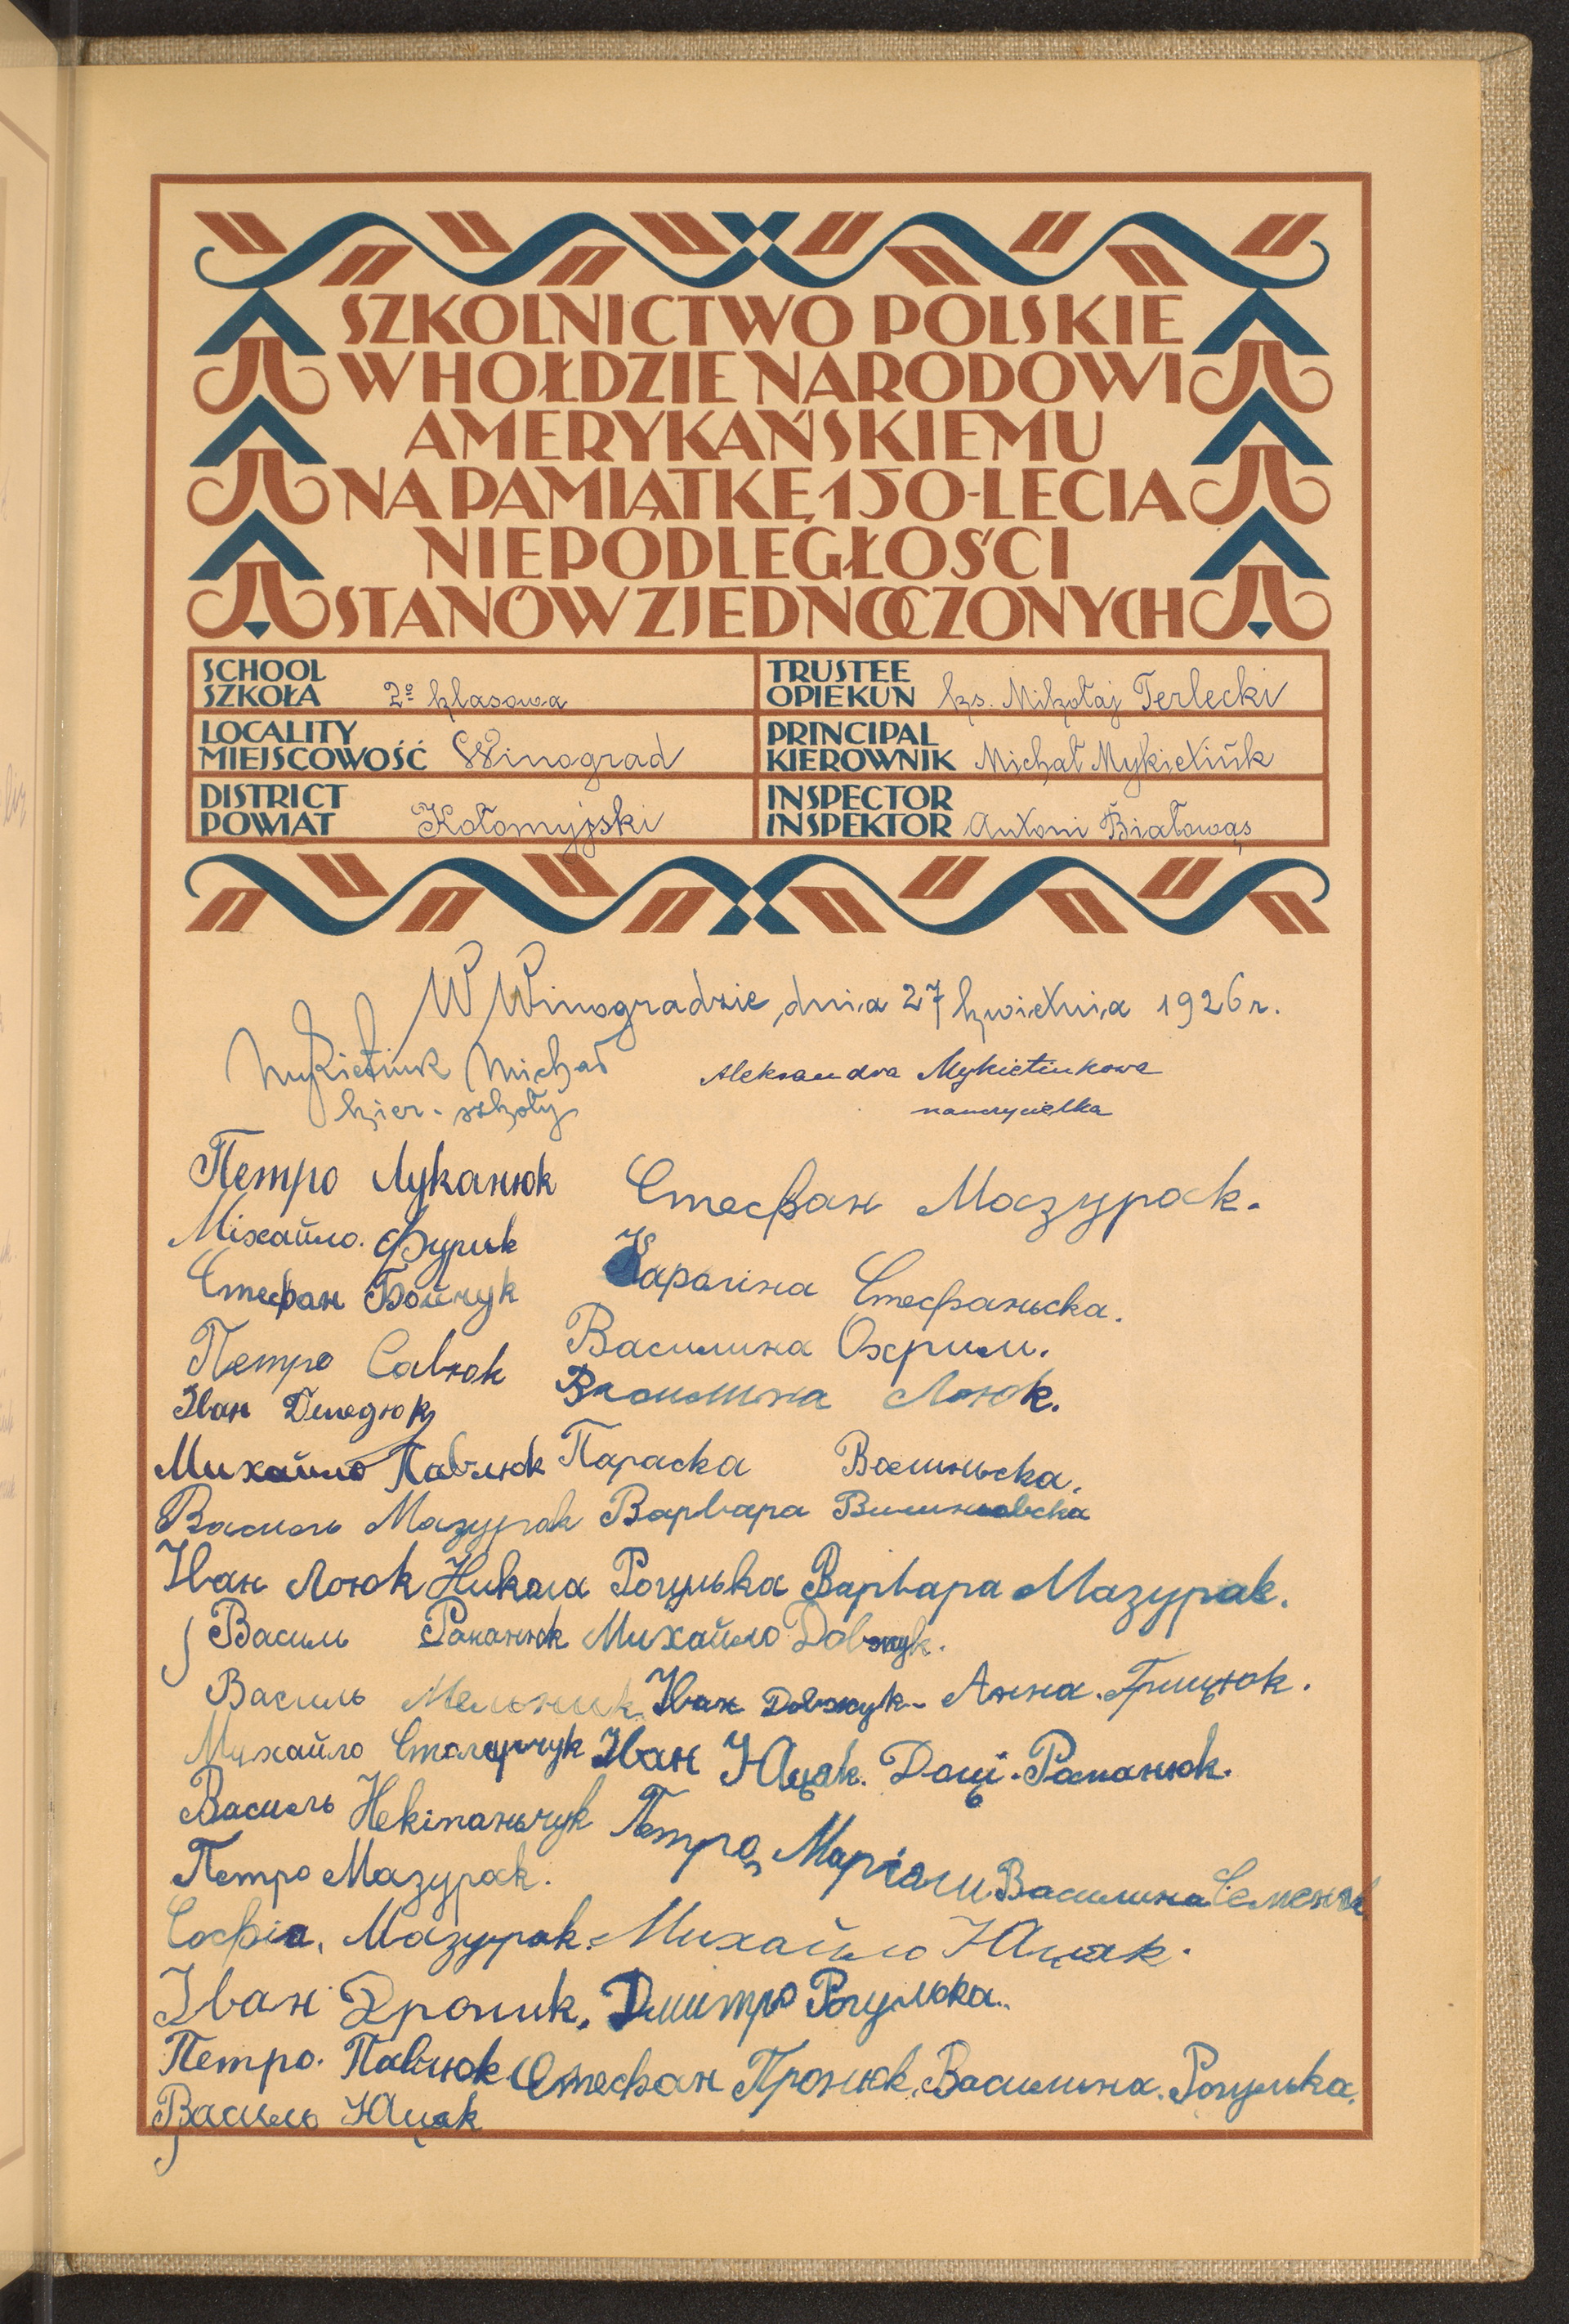 SZKOLNICTWO POLSKIE
W HOŁDZIE NARODOWI
AMERYKAŃSKIEMU
NA PAMIĄTKĘ 150-LECIA
NIEPODLEGŁOŚCI
STANÓW ZJEDNOCZONYCH
SCHOOL
SZKOŁA 2º klasowa
TRUSTEE
OPIEKUN ks. Mikołaj Terlecki
LOCALITY
MIEJSCOWOŚĆ Winograd
PRINCIPAL
KIEROWNIK Michał Mykietiuk
DISTRICT
POWIAT Kołomyjski
INSPECTOR
INSPEKTOR Antoni Białowąs
W Winogradzie, dnia 27 kwietnia 1926 r.
Mykietiuk Michał Aleksandra Mykietiukowa
kier. szkoły nauczycielka
Петро Луканюк Стефан Мазурак.
Міхайло. Фурик
Стефан Бойчук Кароліна Стефаньска.
Петро Савюк Василина Охрим.
Іван Василина Лоюк.
Михайло Павлюк Параска
Василь Мазурак Варвара
Іван Лоюк Никола Рогулька Варвара Мазурак.
Василь Романюк Михайло
Василь Мельник. Іван Анна. Грицюк.
Михайло Іван Юцак. Доці. Романюк.
Василь Петро
Петро Мазурак. Василина
Софія, Мазурак. Михайло Юцак.
Іван Дмитро Рогулька.
Петро. Павлюк Стефан Пронюк. Василина. Рогулька.
Василь Юцак